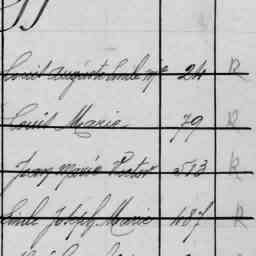 Louis Auguste Emile 24 R
Louis Marie 79 R
Jean Marie Victor 513 R
Emile Joseph Marie 487 R